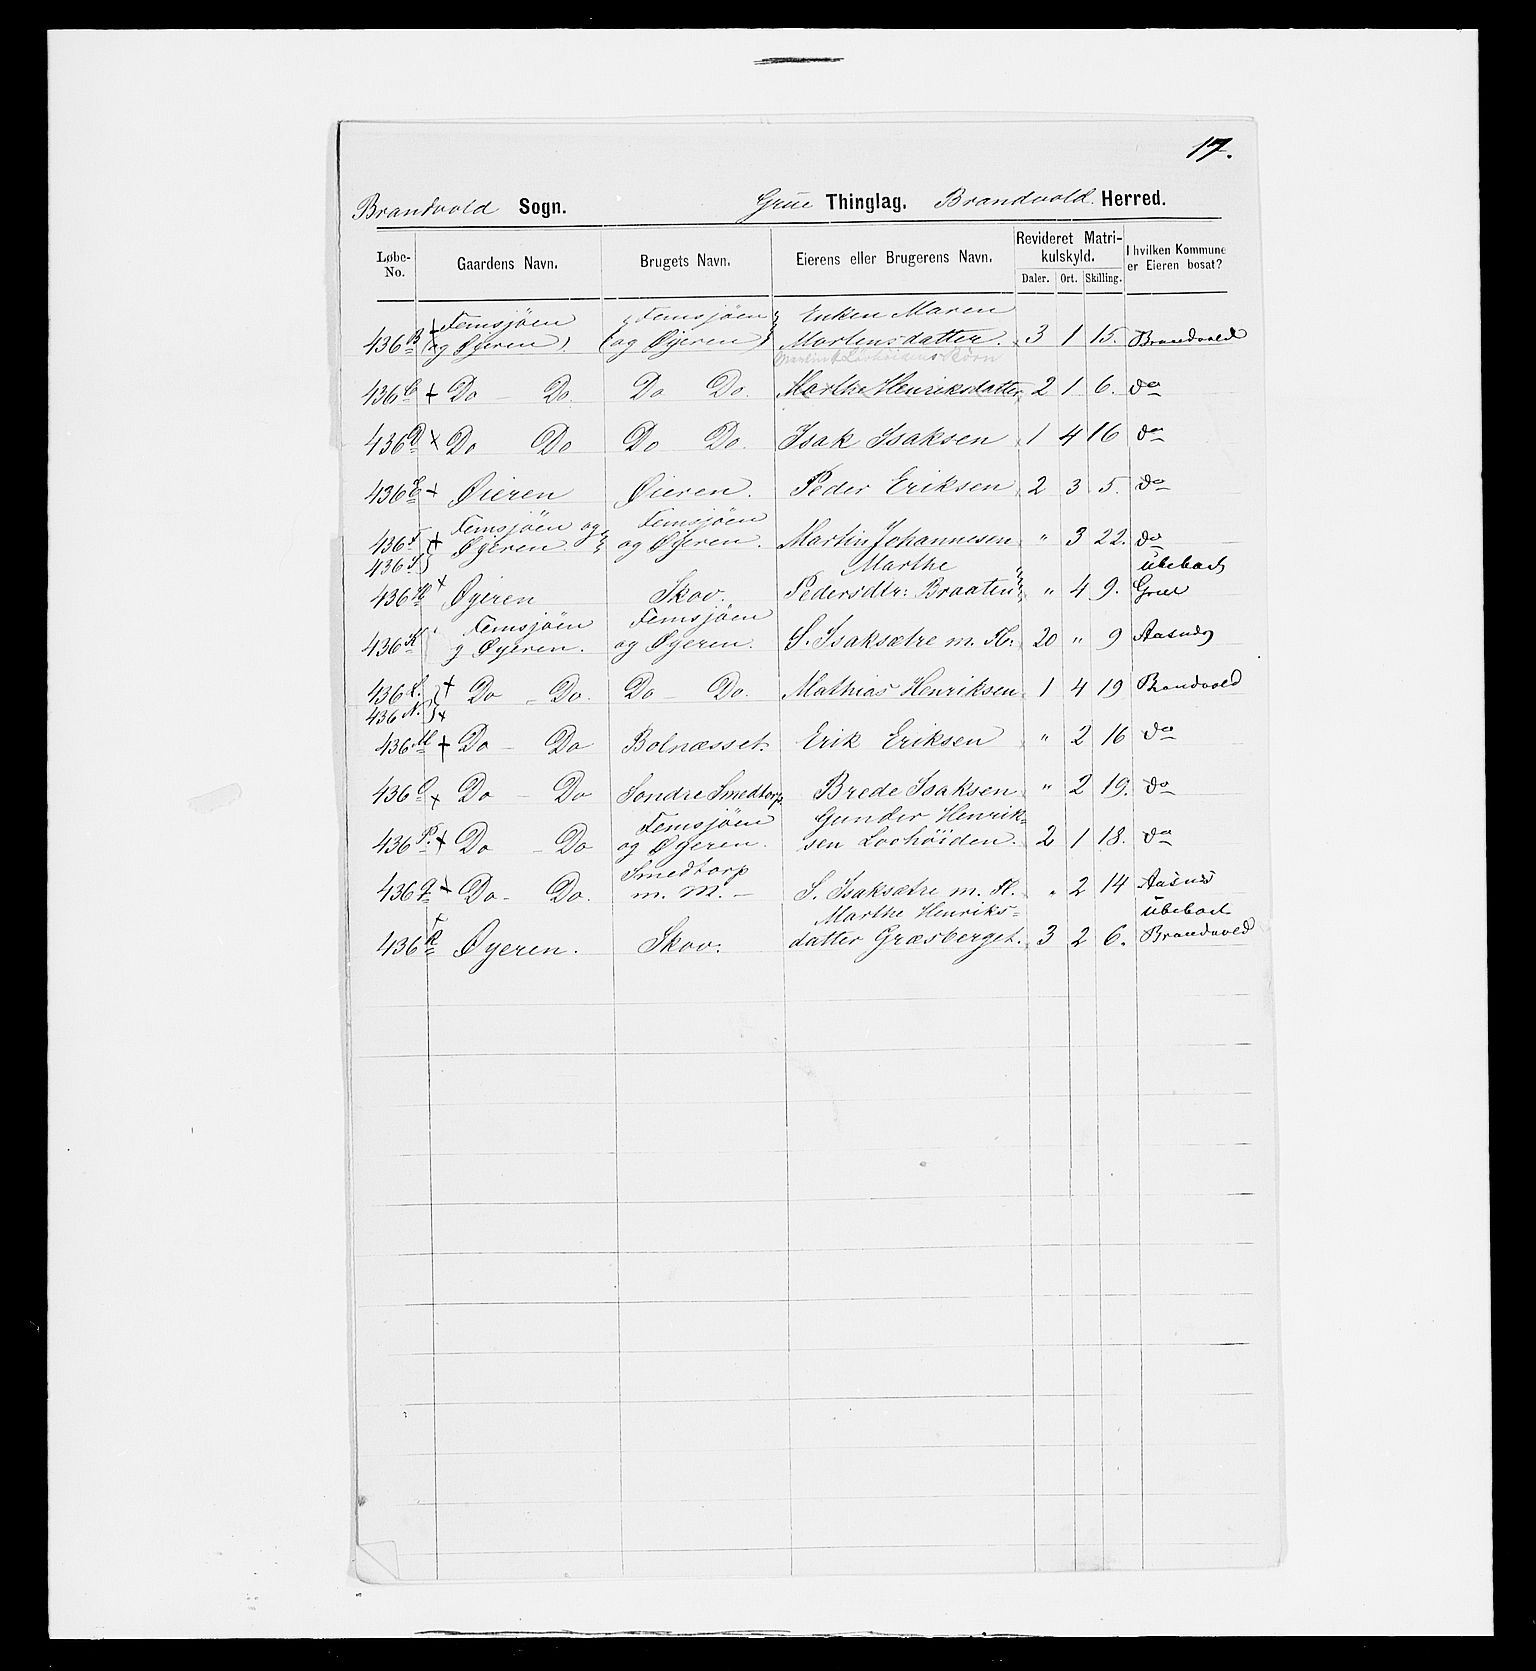 17.
Brandvold Sogn. Grue Thinglag. Brandvold Herred.
Løbe-No. Gaardens Navn. Brugets Navn. Eierens eller Brugerens Navn. Revideret Matrikulskyld. Daler. Ort. Skilling. I hvilken Kommune er Eieren bosat?
Femsjöen Femsjöen Enken Maren
436 B (og Øyeren) (og Øyeren) Mortensdatter. 3 1 15. Brandvold
436 C + Do - Do Do Do. Marthe Henriksdatter 2 1 6. do
436 D × Do Do Do Do. Isak Isaksen 1 4 16 do
436 E + Øieren Øieren. Peder Eriksen 2 3 5. do
Femsjöen og Femsjöen
436 F + Øyeren og Øyeren. Martin Johannesen " 3 22. do
436 Marthe ubeboet
436 H + Øyeren Skov. Pedersdtr: Braaten " 4 9. Grue
Femsjöen Femsjöen
436 K g Øyeren. og Øyeren. S. Isaksætre m. Fl. 20 " 9 Aasnes
436 L. + Do - Do. Do - Do. Mathias Henriksen 1 4 19 Brandvold
436 N. ×
436 M + Do - Do Bolnæsset. Erik Eriksen " 2 16 do
436 O × Do - Do Søndre Smedtorp Brede Isaksen " 2 19. do
Femsjöen Gunder Henrik-
436 P. + Do - Do og Øyeren. sen Lovhöiden. 2 1 18. do
Smedtorp
436 q + Do - Do. m. M. - S. Isaksætre m. Fl. " 2 14 Aasnes
Marthe Henriks- ubeboet
436 R + Øyeren. Skov. datter Græsberget. 3 2 6. Brandvold